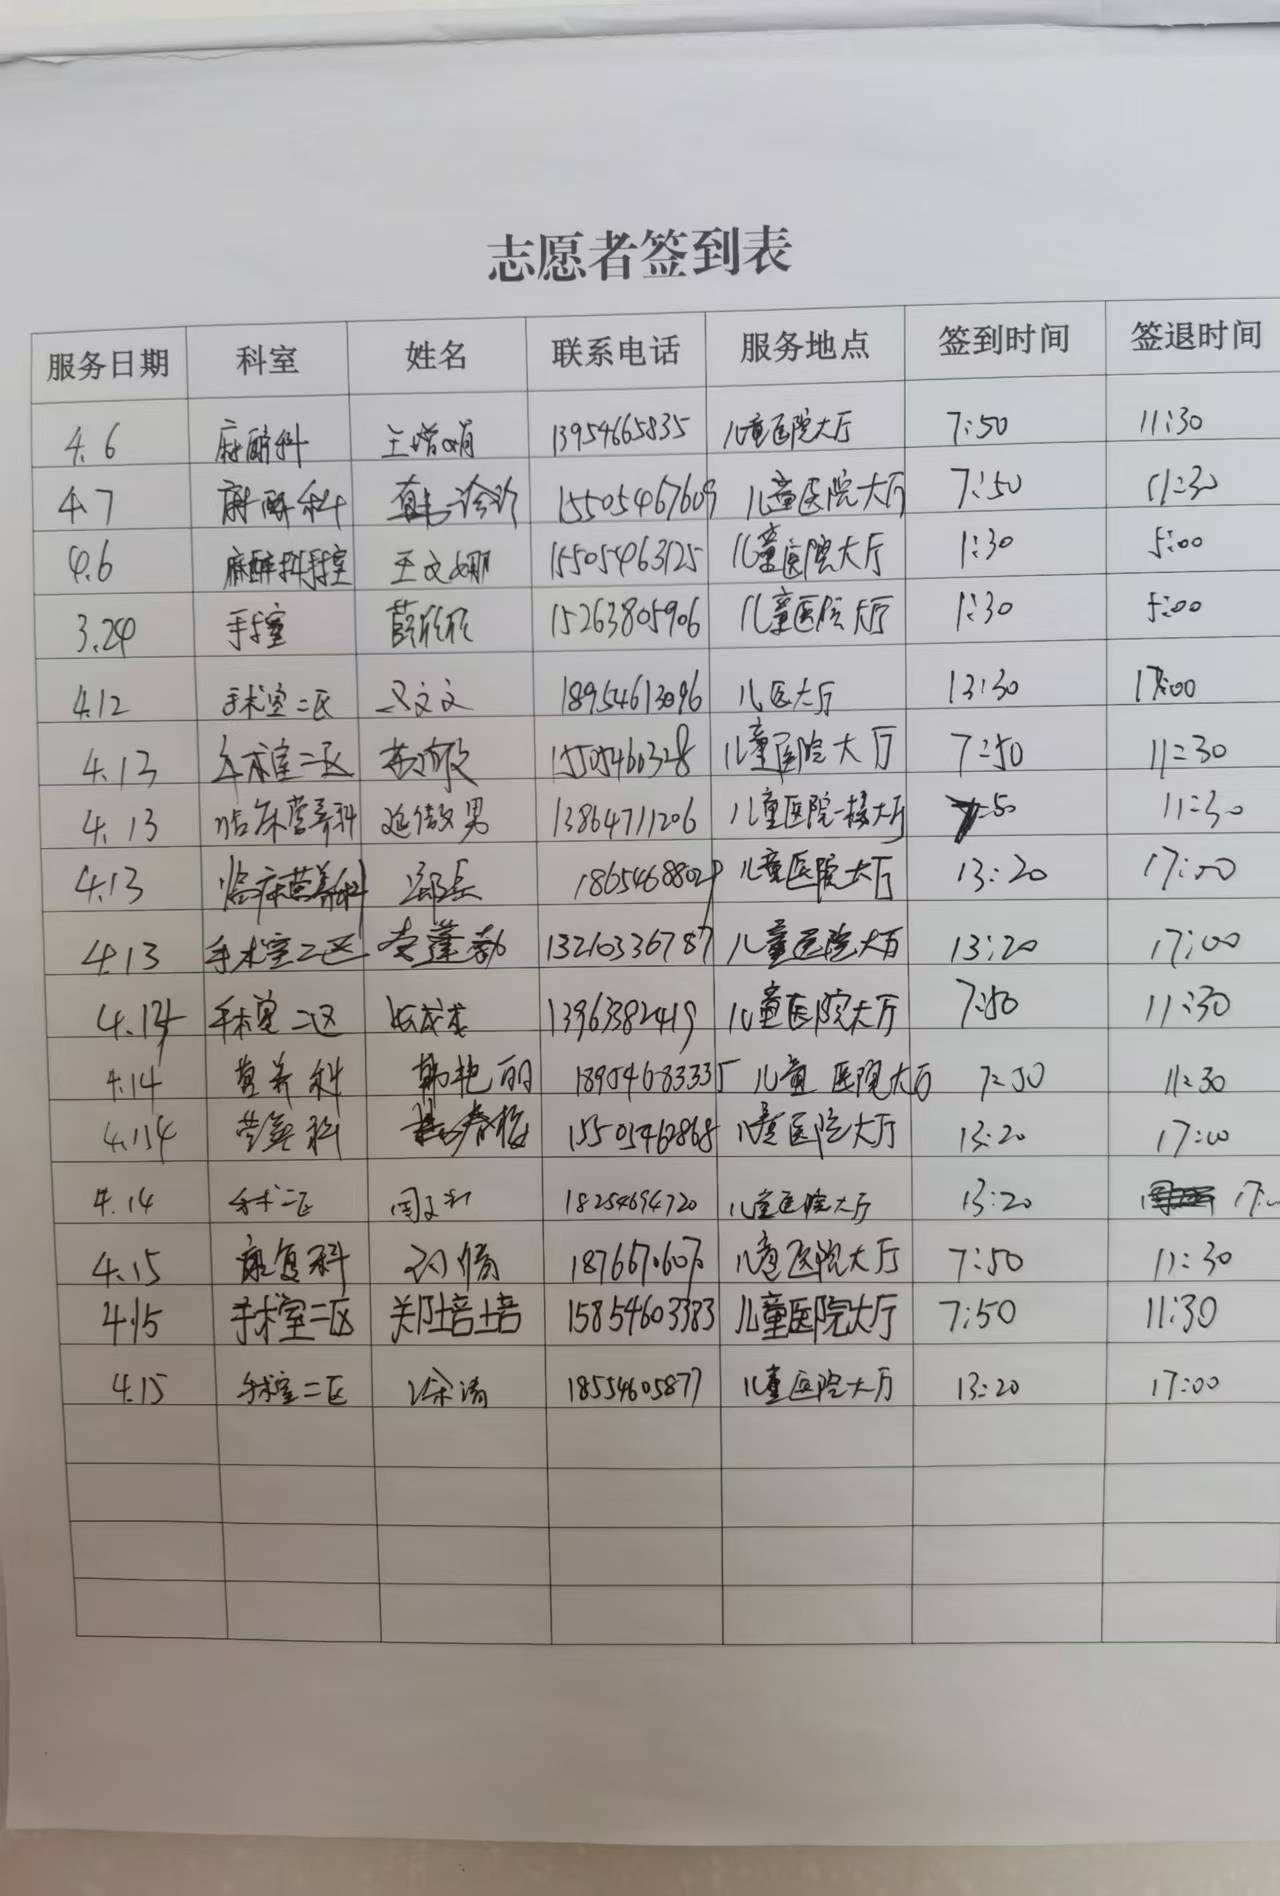 志愿者签到表
服务日期 科室 姓名 联系电话 服务地点 签到时间 签退时间
4.6 麻醉科 13954665835 儿童医院大厅 7:50 11:30
4.7 麻醉科 15505467609 儿童医院大厅 7:50 11:30
4.6 麻醉科手术室 王文娜 15505463125 儿童医院大厅 1:30 5:00
3.24 手术室 15263805906 儿童医院大厅 1:30 5:00
4.12 手术室二区 18954613096 儿医大厅 13:30 17:00
4.13 手术室二区 15505460328 儿童医院大厅 7:50 11:30
4.13 临床营养科 13864711206 儿童医院一楼大厅 7:50 11:30
4.13 临床营养科 18654688029 儿童医院大厅 13:20 17:00
4.13 手术室二区 13210336787 儿童医院大厅 13:20 17:00
手术室二区 13963382419 儿童医院大厅 7:50 11:30
4.14 营养科 韩艳丽 189054683335 儿童医院大厅 7:50 11:30
4.14 营养科 15505462868 儿童医院大厅 13:20 17:00
4.14 手术二区 18254694720 儿童医院大厅 13:20
4.15 康复科 儿童医院大厅 7:50 11:30
4.15 手术室二区 关培培 15854603383 儿童医院大厅 7:50 11:30
4.15 手术室二区 徐清 18554605877 儿童医院大厅 13:20 17:00